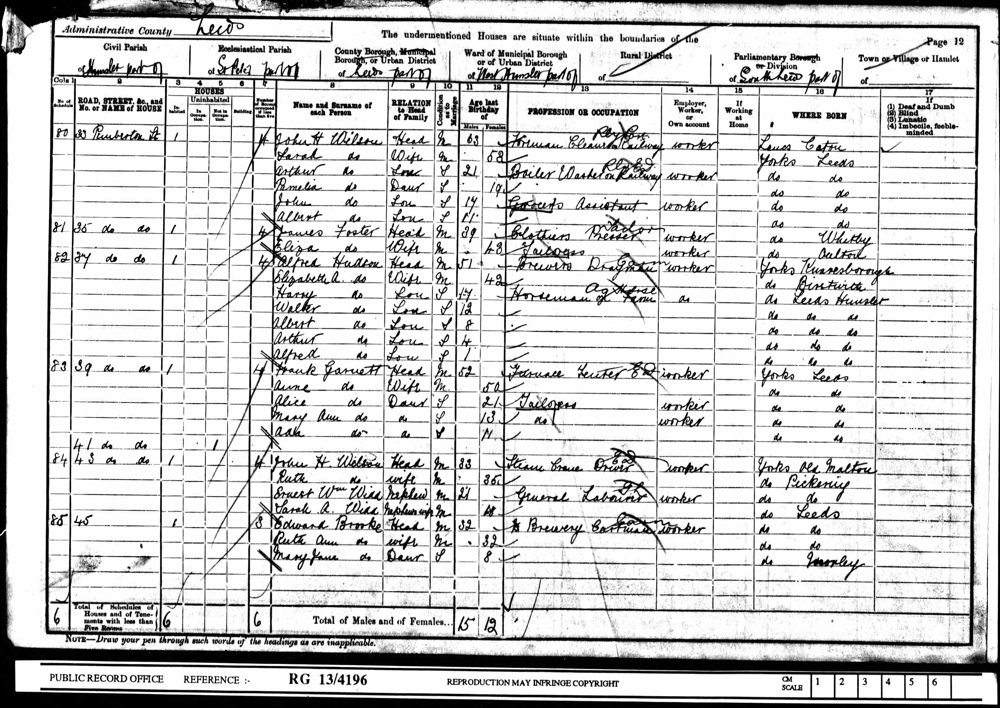 Administrative County Leeds
The undermentioned Houses are situate within the boundaries of the
Page 12
Civil Parish
of Hunslet part of
Ecclesiastical Parish
of St Peters part of
County Borough, Municipal Borough, or Urban District
of Leeds part of
Ward of Municipal Borough or of Urban District
of West Hunslet part of
Rural District
of
Parliamentary Borough or Division
of South Leeds part of
Town or Village or Hamlet
of
Cols. 1 2 3 4 5 6 7 8 9 10 11 12 13 14 15 16 17
No. of Schedule
ROAD, STREET, &c., and No. or NAME of HOUSE
HOUSES
Inhabited
Uninhabited
In Occupation
Not in Occupation
Building
Name and Surname of each Person
RELATION to Head of Family
Condition as to Marriage
Age last Birthday of
Males Females
PROFESSION OR OCCUPATION
Employer, Worker, or Own account
If Working at Home
WHERE BORN
If
(1) Deaf and Dumb
(2) Blind
(3) Lunatic
(4) Imbecile, feeble-minded
80 33 Pemberton St 1 4 John H Wilson Head M 53 Foreman Cleaner Railway worker Lancs Caton
Sarah do Wife M 52 Yorks Leeds
Arthur do Son S 21 Boiler Washer on Railway worker do do
Pamelia do Daur S 19 do do
John do Son S 17 Grocers Assistant worker do do
Albert do Son S 11 do do
81 35 do do 1 4 James Foster Head M 39 Clothiers Presser worker do Whitby
Eliza do Wife M 43 Tailoress worker do Oulton
82 37 do do 1 4 Alfred Hudson Head M 51 Brewers Drayman worker Yorks Knaresborough
Elizabeth A. do Wife M 42 do Birstwith
Harry do Son S 17 Horseman on Farm do do Leeds Hunslet
Walter do Son S 12 do do do
Albert do Son S 8 do do do
Arthur do Son S 4 do do do
Alfred do Son S 1 do do do
83 39 do do 1 4 Frank Garnett Head M 52 Furnace Tenter worker Yorks Leeds
Anne do Wife M 50 do do
Alice do Daur S 21 Tailoress worker do do
Mary Ann do do S 13 do worker do do
Ada do do S 7 do do
41 do do 1
84 43 do do 1 4 John H. Wilson Head M 33 Steam Crane Driver worker Yorks Old Malton
Ruth do wife M 35 do Pickering
Ernest Wm Widd Nephew M 21 General Labourer worker do do
Sarah A. Widd Nephews wife M 18 do Leeds
85 45 1 3 Edward Brooke Head M 32 Brewery Cartman worker do do
Ruth Ann do wife M 32 do do
Mary Jane do Daur S 8 do Morley
6 Total of Schedules of Houses and of Tenements with less than Five Rooms 6 6 Total of Males and of Females... 15 12
NOTE—Draw your pen through such words of the headings as are inapplicable.
PUBLIC RECORD OFFICE REFERENCE :- RG 13/4196 REPRODUCTION MAY INFRINGE COPYRIGHT CM SCALE 1 2 3 4 5 6